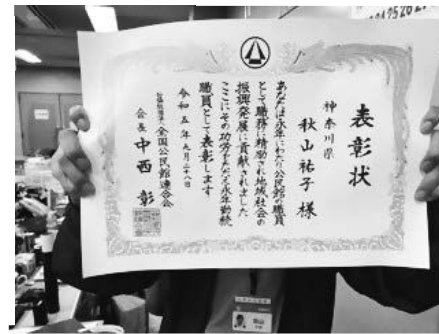 表彰状
神奈川県
秋山祐子 様
あなたは永年にわたり公民館の職員
として職務に精励され地域社会の
振興発展に貢献されました
ここにその功労をたたえ永年勤続
職員として表彰します
令和五年九月二十八日
公益社団法人 全国公民館連合会
会長 中西 彰
秋山